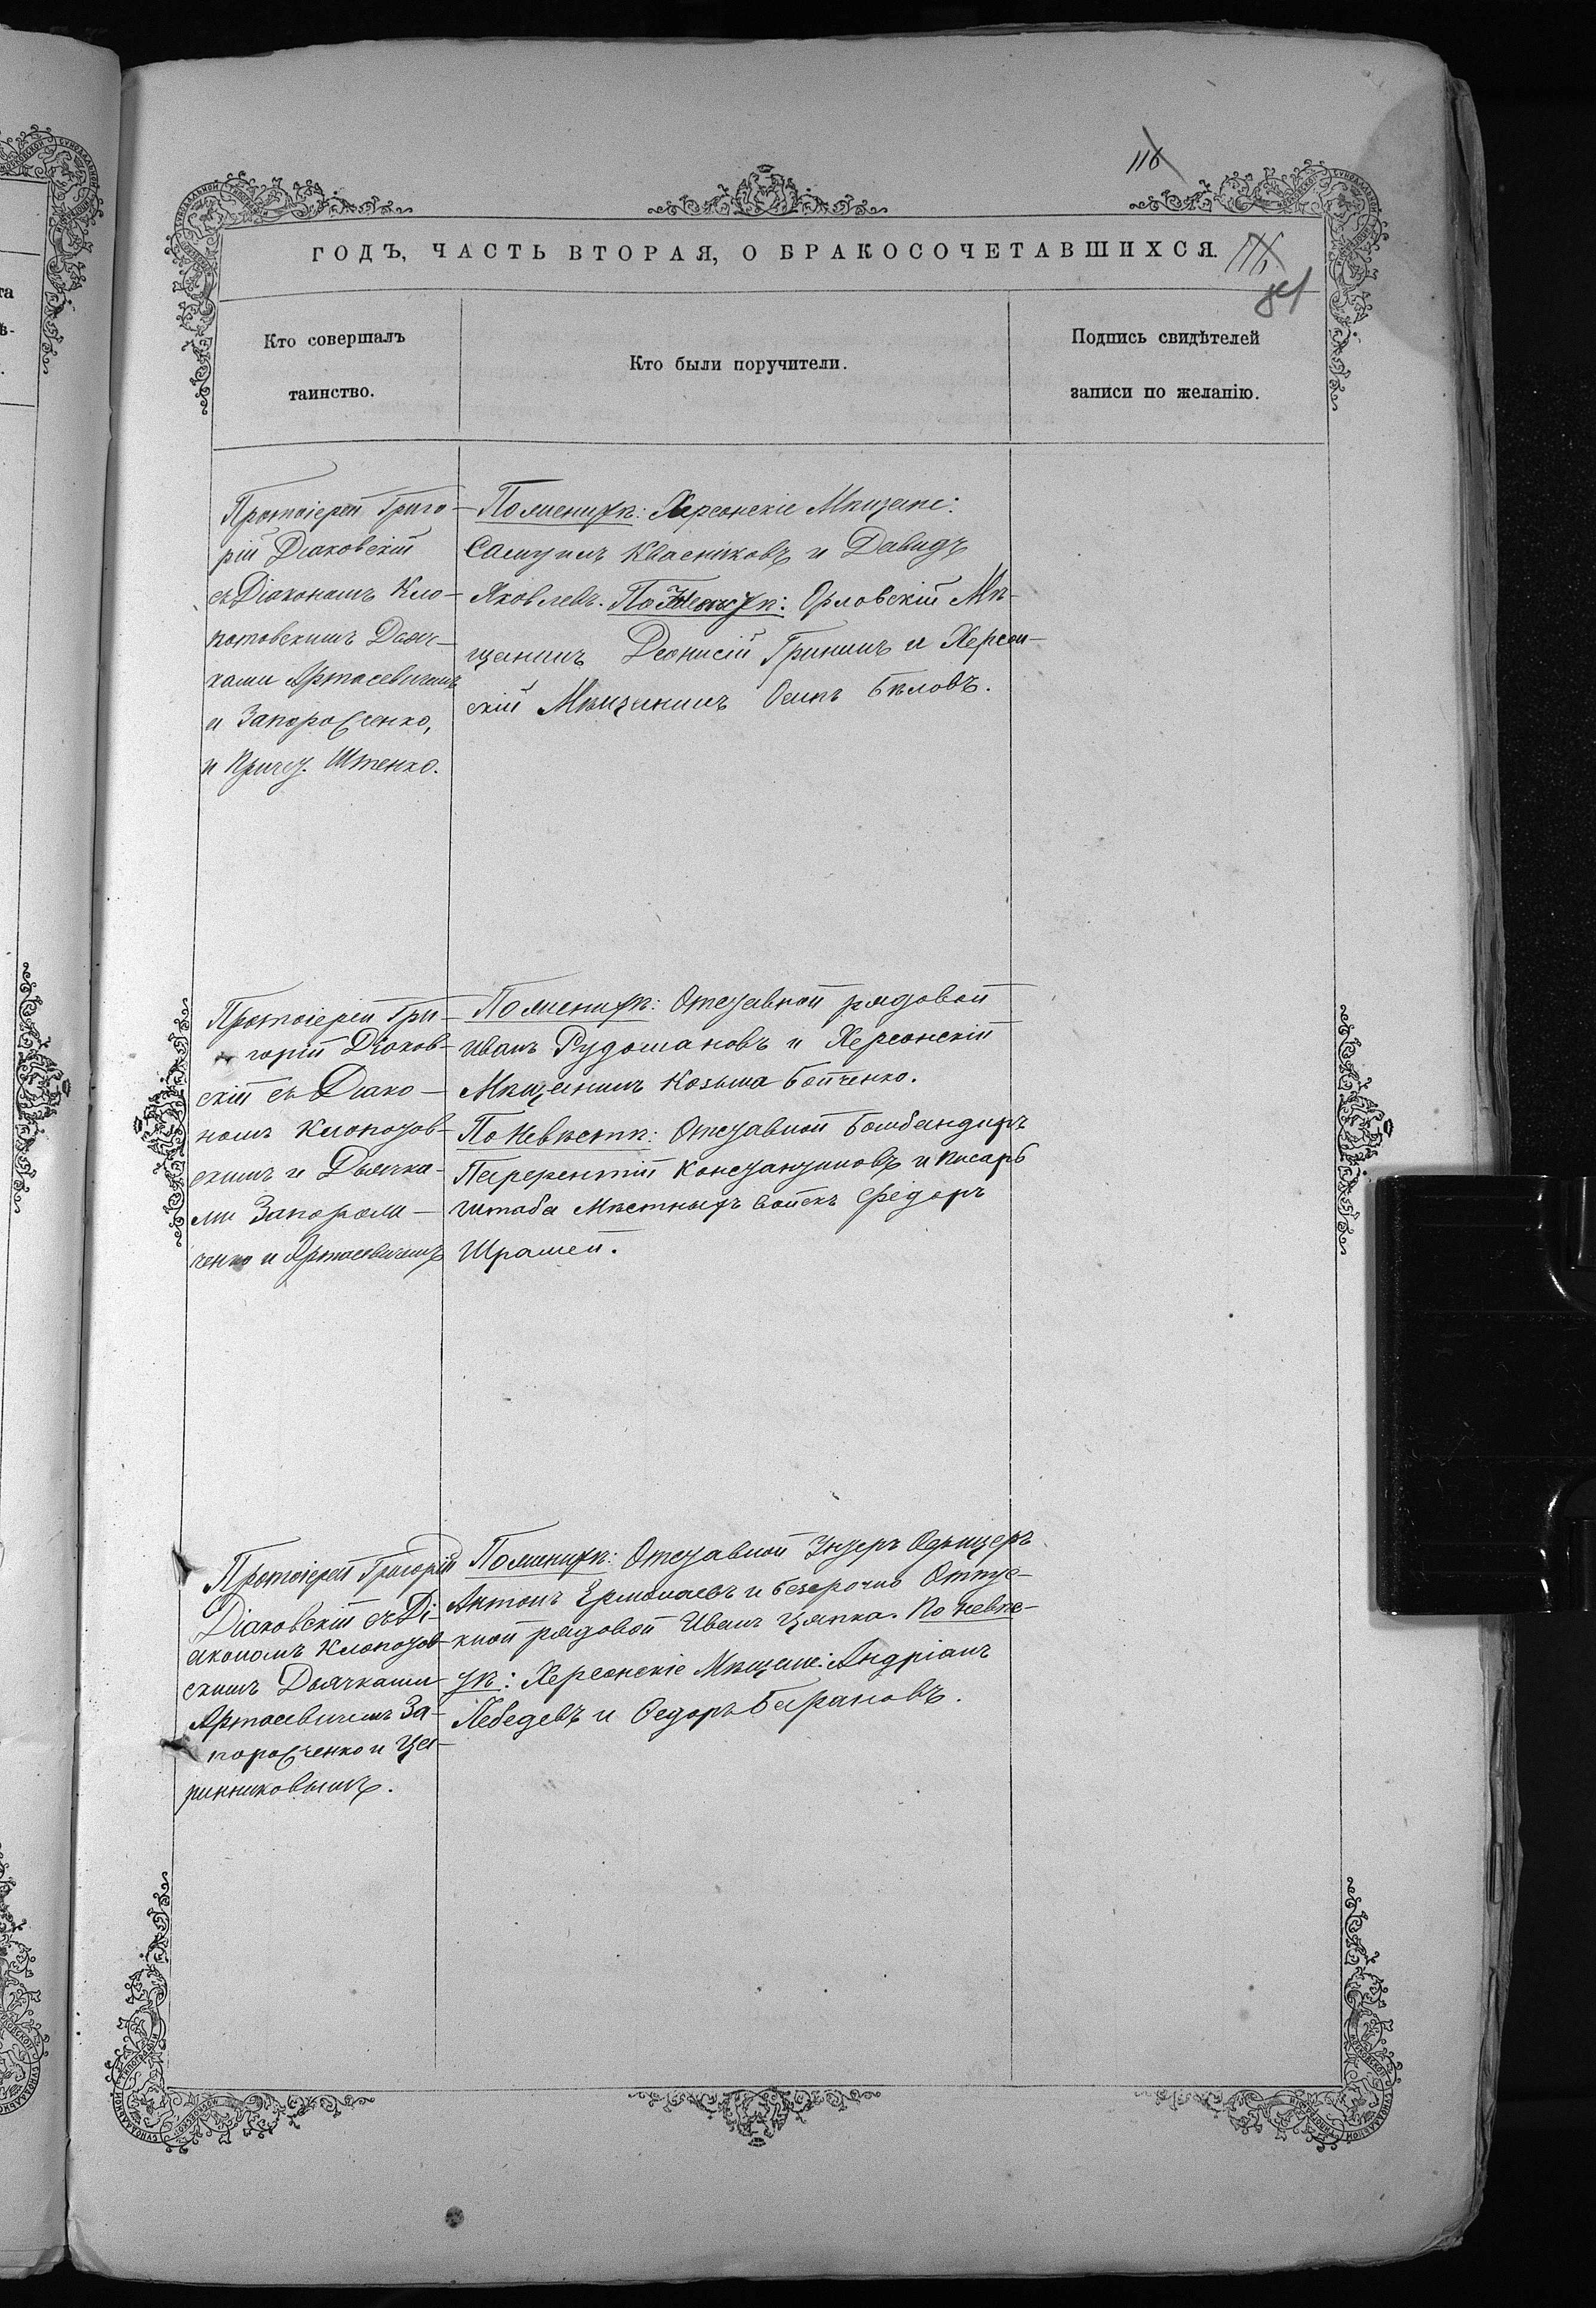 116
ГОДЪ, ЧАСТЬ ВТОРАЯ, О БРАКОСОЧЕТАВШИХСЯ.
116
Кто совершалъ
таинство.
Кто были поручители.
Подпись свидѣтелей
записи по желанію.
Протоіерей Григо-
рій Діаковскій
съ Діакономъ Кло-
потовскимъ Дьяч-
ками Артасевичемъ
и Запорожченко,
и Причет. Штенко.
По женихѣ: Херсонскіе Мѣщане:
Самуилъ Квасниковъ и Давидъ
Яковлевъ. По Невѣстѣ: Орловскій Мѣ-
щанинъ Деонисій Гринимъ и Херсон-
скій Мѣщанинъ Осипъ Бѣловъ.
Протоіерей Гри-
горій Діаков-
скій съ Діако-
номъ Клопотов-
скимъ и Дьячка-
ми Запорож-
ченко и Артасевичемъ
По женихѣ: Отставной рядовой
Иванъ Рудомановъ и Херсонскій
Мѣщанинъ Козьма Бойченко.
По Невѣстѣ: Отставной Бомбандиръ
Терентій Константиновъ и писарь
штаба Мѣстныхъ войскъ Федоръ
Шрамей.
Протоіерей Григорій
Діаковскій съ Ді-
акономъ Клопотов-
скимъ Дьячками
Артасевичемъ За-
порожченко и Ца-
ринниковымъ.
По женихѣ: Отставной Унтеръ Офицеръ
Антонъ Ермолаевъ и безсрочно Отпус-
кной рядовой Иванъ Цяпка. По невѣс-
тѣ: Херсонскіе Мѣщане: Андріанъ
Лебедевъ и Федоръ Барановъ.